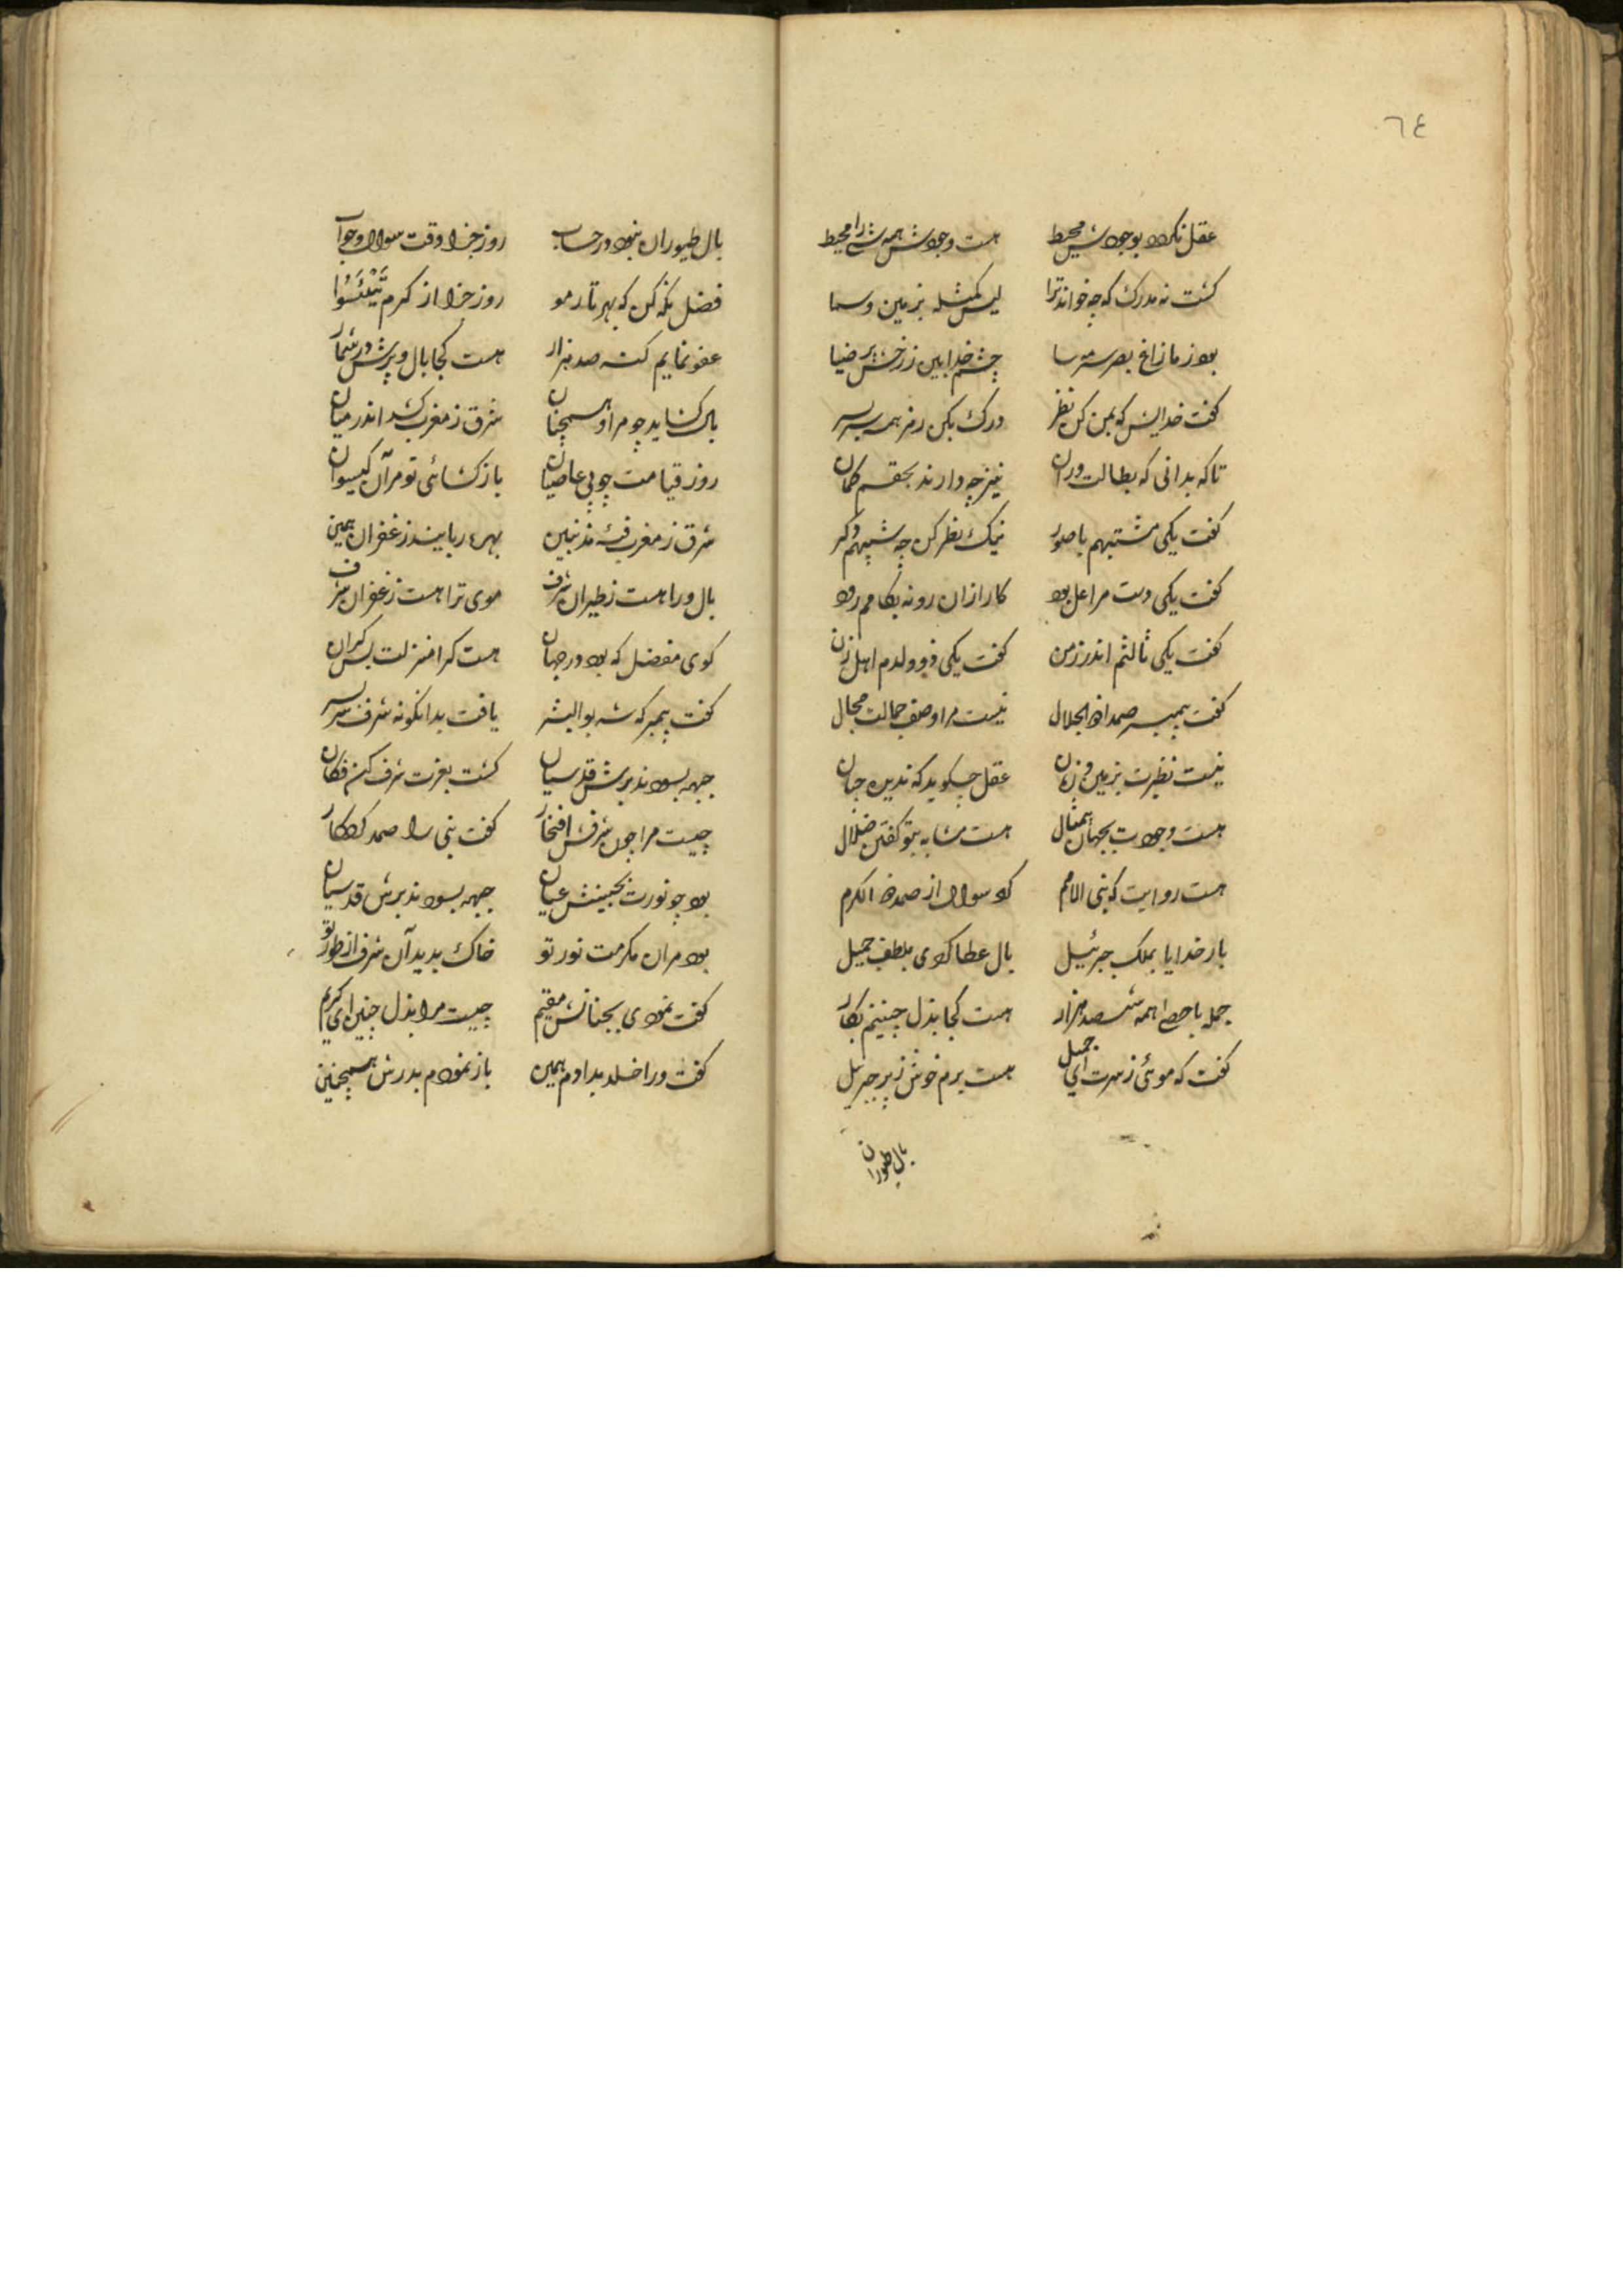 ٦٤
عقل نکرده بوجودش محیط هست وجودش همه شئ را محیط
گشت نه مدرک که چه خوانند ترا لیس کمثله بزمین و سما
بود ز مازاغ بصر سرمه سا چشم خدابین ز رخش پر ضیا
گفت خدایش که بمن کن نظر درک بکن رمز همه سر بسر
تا که بدانی که بطالت وران نیز چه دارند بحقم گمان
گفت یکی مشتبهم با صور نیک نظر کن چه شبیهم دگر
گفت یکی دست مرا غل بود کار ازان رو نه بکامم رود
گفت یکی ثالثم اندر زمن گفت یکی ذو ولدم اهل زن
گفت پیمبر صمدا ذا الجلال نیست مرا وصف جمالت مجال
نیست نظیرت بزمین و زمان عقل چگوید که ندیده چنان
هست وجودت بجهان بیمثال هست مشابه بتو گفتن ضلال
هست روایت که نبی الامم کرد سوال از صمد ذا الکرم
بار خدایا بملک جبرئیل بال عطا کردی بلطف جمیل
جمله باحصا همه ششصد هزار هست کجا بذل چنینم بکار
گفت که موئی ز سرت ای جمیل هست برم خوش ز پر جبرئیل
بال طیوران
بال طیوران نبود در حساب روز جزا وقت سوال و جواب
فضل نگه کن که بهر تار مو روز جزا از کرم تیئسوا
عفو نمایم گنه صد هزار هست کجا بال و پرش در شمار
بال گشاید چو مر او همچنان شرق ز مغرب کشد اندر میان
روز قیامت چو پی عاصیان باز گشائی تو مر آن گیسوان
شرق ز مغرب فئه مذنبین بهره ربایند ز غفران همین
بال ورا هست ز طیران شرف موی ترا هست ز غفران شرف
گوی مفضل که بود در جهان هست کرا منزلت بس گران
گفت پیمبر که شه بو البشر یافت بدانگونه شرف سر بسر
جبهه بسودند برش قدسیان گشت بعزت شرف کن فکان
چیست مرا چون شرفش افتخار گفت نبی را صمد کردگار
بود چو نورت بجبینش عیان جبهه بسودند برش قدسیان
بود مر آن مکرمت نور تو خاک بدید آن شرف از طور تو
گفت نمودی بجنانش مقیم چیست مرا بذل چنین ای کریم
گفت ورا خلد بدادم همین باز نمودم بدرش همچنین